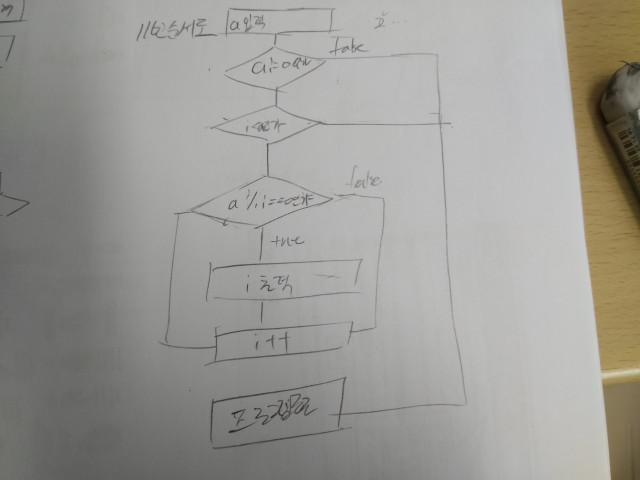 //순서로
a입력
false
a!=0인가
i<a인가
a%i==0인가
false
true
i 출력
i++
프로그램종료